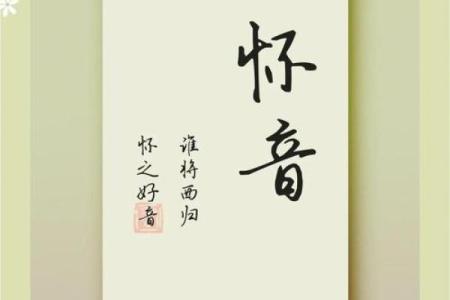 怀音
谁将西归
怀之好音